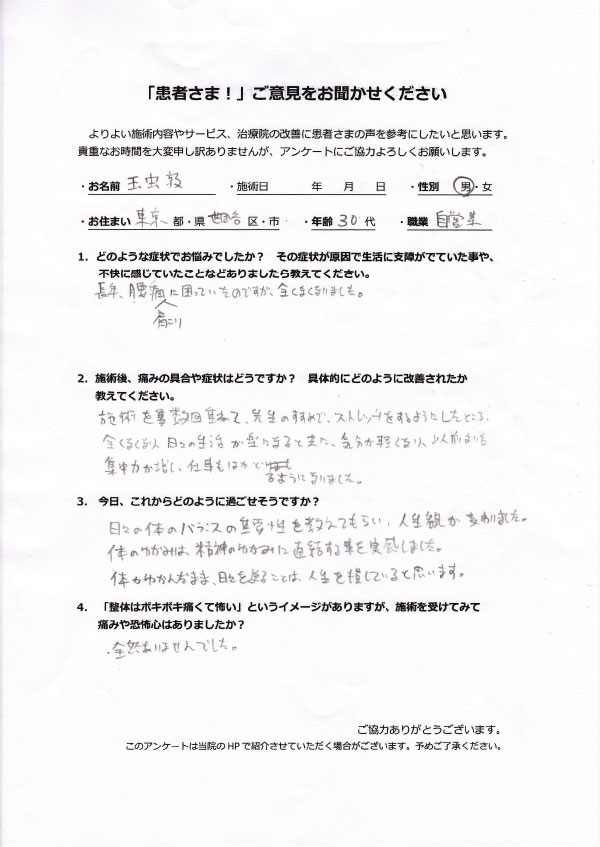 「患者さま！」ご意見をお聞かせください
よりよい施術内容やサービス、治療院の改善に患者さまの声を参考にしたいと思います。
貴重なお時間を大変申し訳ありませんが、アンケートにご協力よろしくお願いします。
・お名前 玉虫 ・施術日 年 月 日 ・性別 男・女
・お住まい 東京 都・県 世田谷 区・市 ・年齢 30 代 ・職業 自営業
1．どのような症状でお悩みでしたか？ その症状が原因で生活に支障がでていた事や、
不快に感じていたことなどありましたら教えてください。
長年、腰痛に困っていたのですが、全くなくなりました。
肩こり
2．施術後、痛みの具合や症状はどうですか？ 具体的にどのように改善されたか
教えてください。
施術を数回重ねて、先生のすすめで、ストレッチをするようにしたところ、
全くなくなり、日々の生活が楽になると、また、気分が軽くなり、以前よりも
集中力が増し、仕事もはかどる
ようになりました。
3．今日、これからどのように過ごせそうですか？
日々の体のバランスの重要性を教えてもらい、人生観が変わりました。
体のゆがみは、精神のゆがみに直結する事を実感しました。
体がゆがんだまま、日々を送ることは、人生を損していると思います。
4．「整体はボキボキ痛くて怖い」というイメージがありますが、施術を受けてみて
痛みや恐怖心はありましたか？
全然ありませんでした。
ご協力ありがとうございます。
このアンケートは当院のHPで紹介させていただく場合がございます。予めご了承ください。